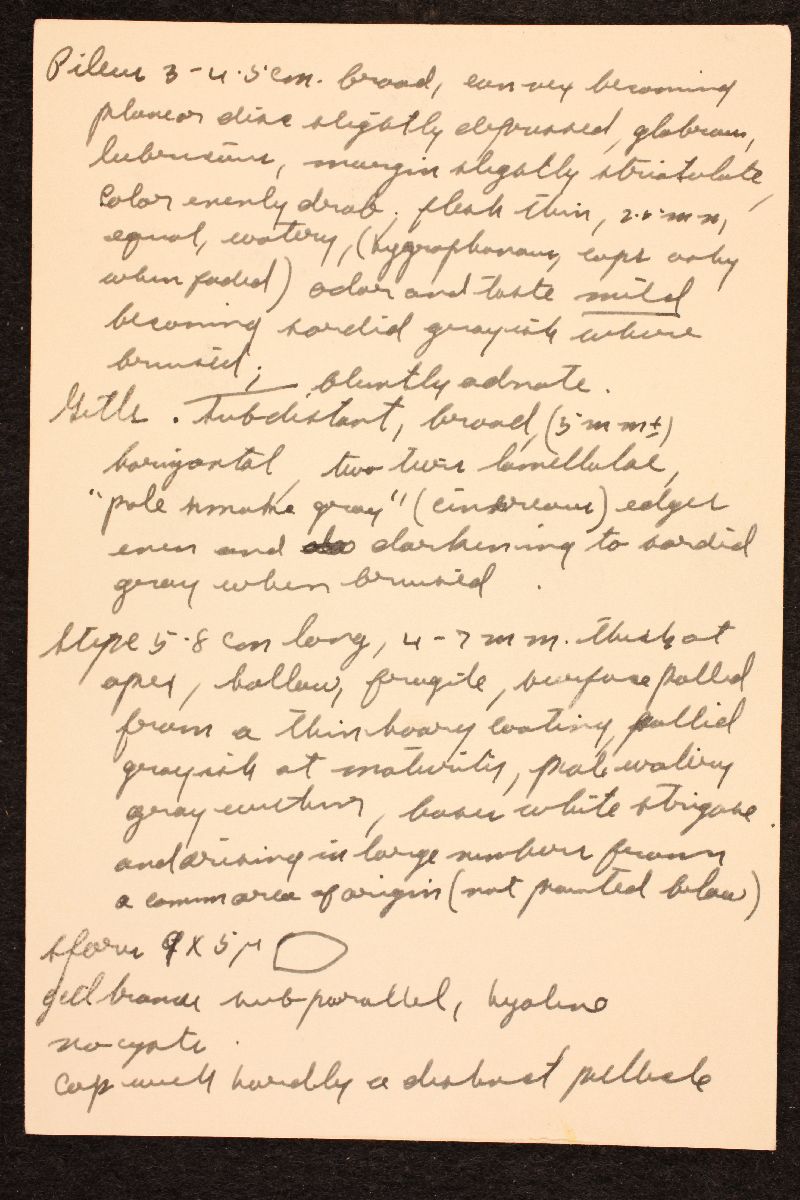 Pileus 3-4.5 cm. broad, convex becoming
plane or disc slightly depressed, glabrous,
lubricous, margin slightly striatulate,
color evenly drab; flesh thin, 2± mm,
equal, watery, (hygrophanous, caps ashy
when faded) odor and taste mild
becoming sordid grayish where
bruised; bluntly adnate.
Gills. subdistant, broad, (5 mm±)
horizontal, two tiers lamellulae,
"pale smoke gray" (cinereous) edges
even and darkening to sordid
gray when bruised.
Stipe 5-8 cm long, 4-7 mm. thick at
apex, hollow, fragile, surface pallid
from a thin hoary coating, pallid
grayish at maturity, pale watery
gray within, bases white strigose.
and arising in large numbers from
a common area of origin (not pointed below)
spores 9 X 5 µ
gill trama subparallel, hyaline
no cysts.
Cap with hardly a distinct pellicle